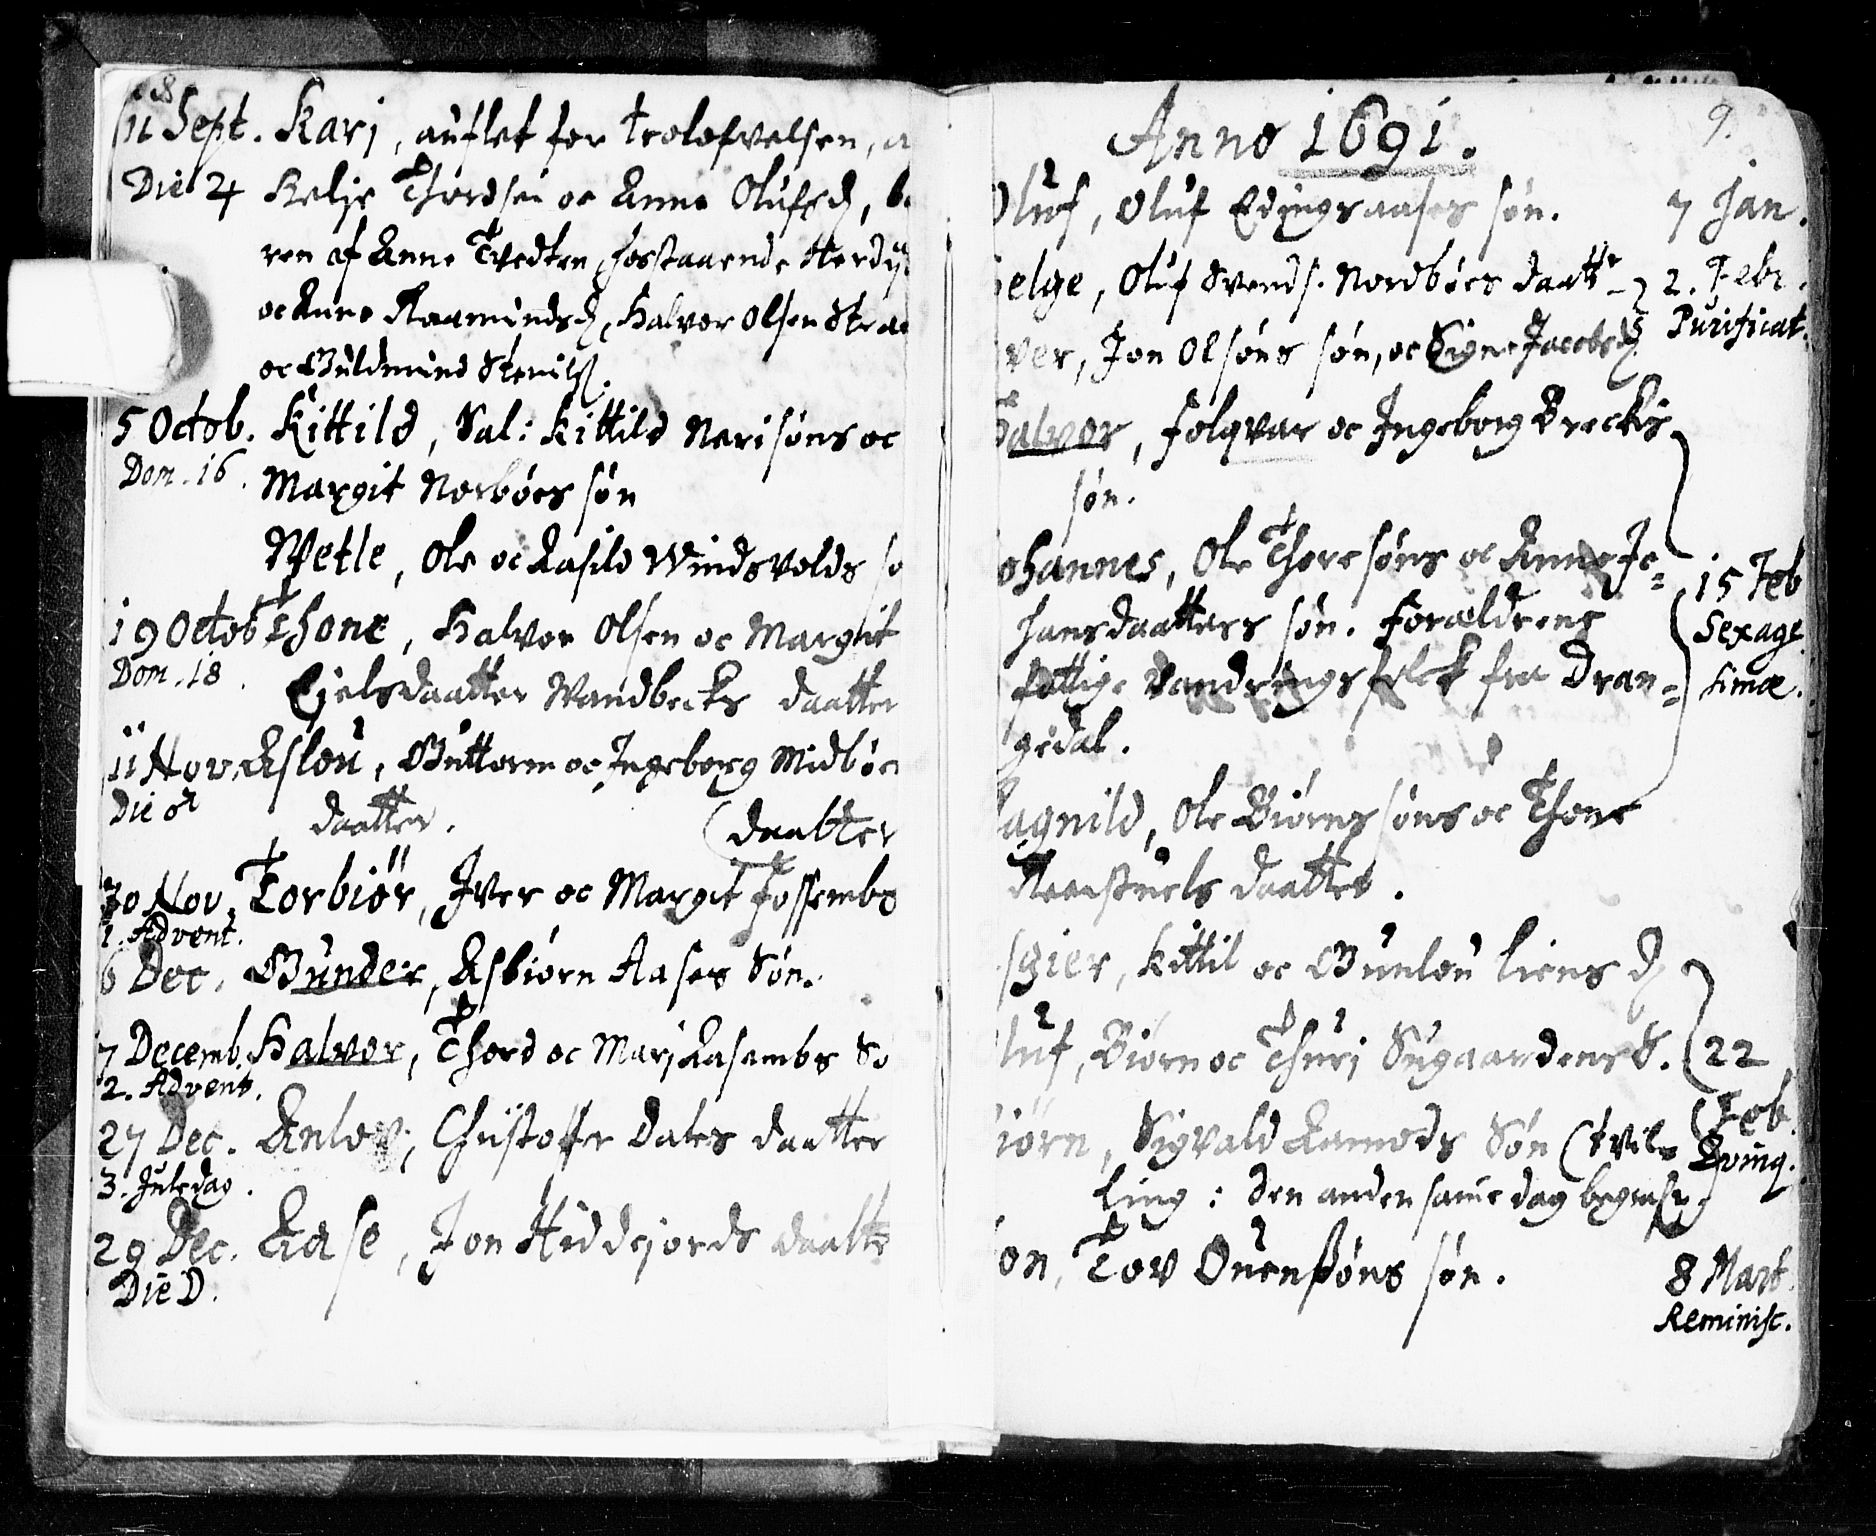 8
11 Sept. Kari, auflet for trolofvelsen, a
Die ♃ Kelje Thordsen oc Anne Olufsd, b
ren af Anne Tvedten, hosstaaende
oc Anne Aamundsd, Halvor Olsen
oc Guldmund
5 Octob. Kittild, Sal: Kittild Neri søns oc
Dom. 16. Margit Norbøes søn
Wetle, Ole oc Aasild Windsvolds sø
19 Octob Thone, Halvor Olsen oc Margit
Dom. 18. Ejelsdaatter Wandbecks daatter
11 Nov. Aslou, Guttorm oc Ingeborg Midbøe
Die ♂ daatter. (daatter
30 Nov. Torbiör, Iver oc Margit Fossembs
1. Advent.
6 Dec. Gunder, Asbiørn Aases Søn.
7 Decemb. Halvor, Thord oc Mari Aasembs Sø
2. Advent.
27 Dec. Anlov, Christoffer Dales daatter
3. Juledag.
29 Dec. Aase, Jon Hiddejords daatte
Die ☽.
9.
Anno 1691.
Oluf, Oluf Edingsaases søn. 7 Jan.
elge, Oluf Svends. Nordbøes daatt 2. Febr.
ver, Jon Olsøns søn, oc Signe Jacobsd Purificat.
Halvor, Folqvar oc Ingeborg Breckis
søn.
ohannes, Ole Thoresøns oc Anne Jo= 15 Feb
hansdaatters søn. Forældrene Sexage
fattige Vandringsfolck fra Dran= simæ.
gedal.
agnild, Ole Biørns søns oc Thone
daatter.
sgier, Kittil oc Gunlou Liens d
luf, Biørn oc Thuri Sugaardens S. 22
iörn, Sigvald Aamods Søn (tvil= Feb.
ling: den anden samme dag begrafv Qvinq.
on, Tov Ouensøns søn. 8 Mart.
Reminisc.